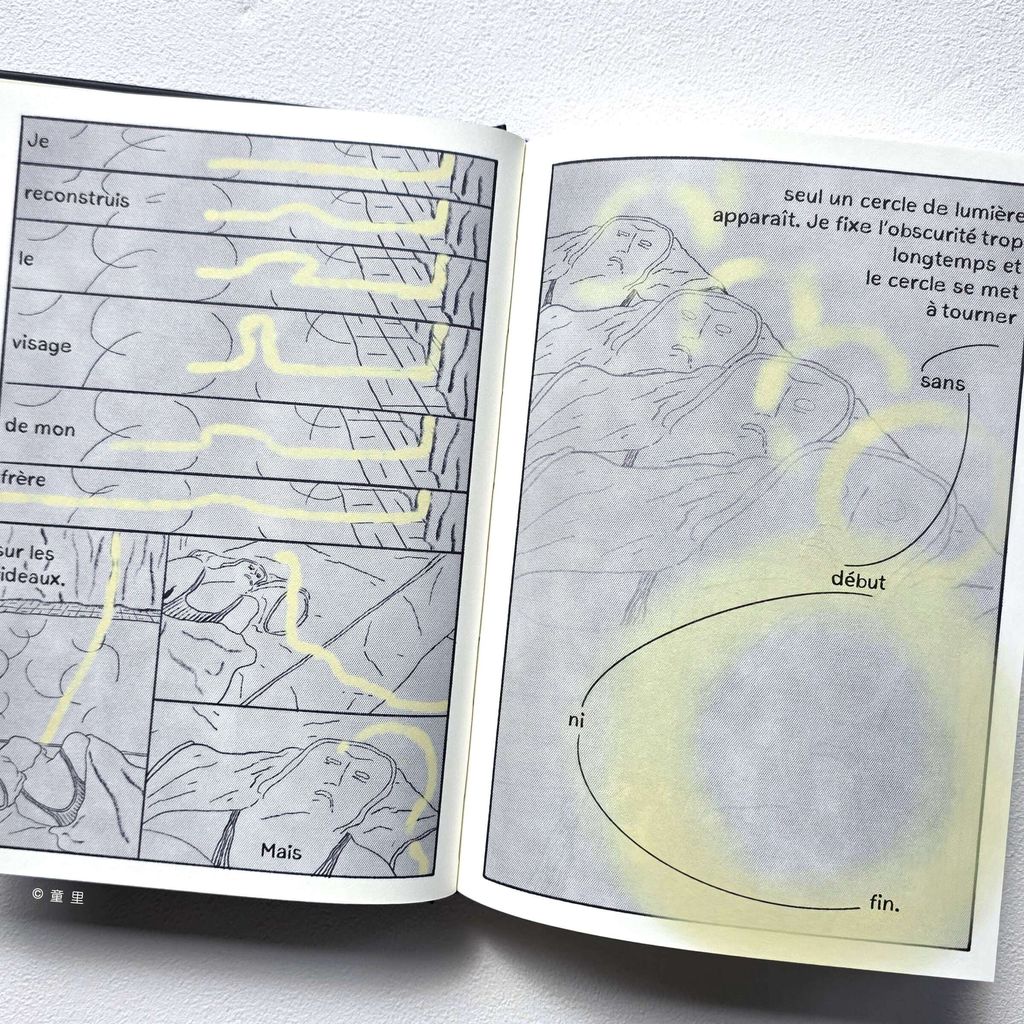 Je
reconstruis
le
visage
de mon
frère
sur les
ideaux.
Mais
seul un cercle de lumière
apparaît. Je fixe l'obscurité trop
longtemps et
le cercle se met
à tourner
sans
début
ni
fin.
© 童 里